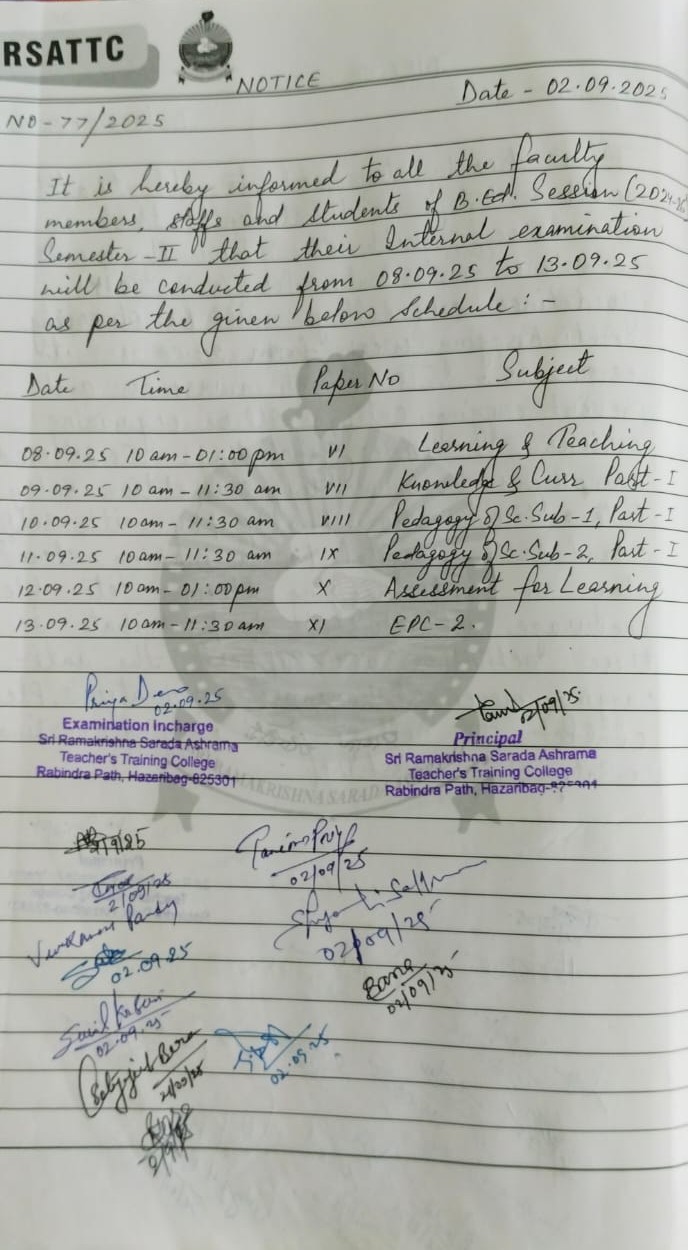 RSATTC
NOTICE
Date - 02.09.2025
NO-77/2025
It is hereby informed to all the faculty
members, staffs and students of B.Ed. Session (2024-26)
Semester-II that their Internal examination
will be conducted from 08.09.25 to 13.09.25
as per the given below Schedule :-
Date Time Paper No Subject
08.09.25 10 am - 01:00 pm VI Learning & Teaching
09.09.25 10 am - 11:30 am VII Knowledge & Curr Part-I
10.09.25 10 am - 11:30 am VIII Pedagogy of Sc. Sub-1, Part-I
11.09.25 10 am - 11:30 am IX Pedagogy of Sc. Sub-2, Part-I
12.09.25 10 am - 01:00 pm X Assessment for Learning
13.09.25 10 am - 11:30 am XI EPC-2.
02.09.25
Examination Incharge
Sri Ramakrishna Sarada Ashrama
Teacher's Training College
Rabindra Path, Hazaribag-825301
02/09/25
Principal
Sri Ramakrishna Sarada Ashrama
Teacher's Training College
Rabindra Path, Hazaribag-
RAMAKRISHNA SARAD
02/09/25
2/09/25
02.09.25
02/09/25
02/09/25
02.09.25
Satyajit Bera
02.09.25